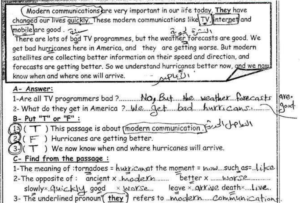 Modern communications are very important in our life today. They have
changed our lives quickly. These modern communications like TV, Internet and
mobile are good.
There are lots of bad TV programmes, but the weather forecasts are good. We
get bad hurricanes here in America, and they are getting worse. But modern
satellites are collecting better information on their speed and direction, and
forecasts are getting better. So we understand hurricanes better now, and we now
know when and where one will arrive.
A- Answer:
1-Are all TV programmers bad ? No, But the weather forecasts are good
2- What do they get in America ? We get bad hurricanes
B- Put "T" or "F" :
1 ( T ) This passage is about modern communication
2 ( F ) Hurricanes are getting better.
3 ( T ) We now know when and where hurricanes will arrive.
C- Find from the passage :
1-The meaning of : tornadoes = hurricanes at the moment = now such as = like
2-The opposite of : ancient x modern better x worse
slowly= quickly good = worse leave = arrive death= live
3- The underlined pronoun ( they ) refers to modern communications